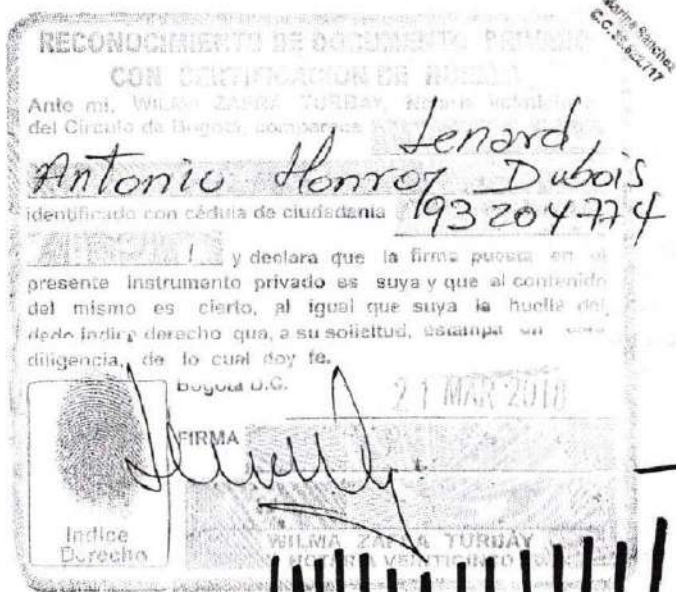 C.C.
RECONOCIMIENTO DE DOCUMENTO PRIVADO
CON CERTIFICACION DE HUELLA
Ante mi, WILMA ZAFRA TURBAY, Notaria
del Circulo de Bogotá, comparece
Lenard
Antonio Monroy Dubois
identificado con cédula de ciudadania 193204774
y declara que la firma puesta en el
presente instrumento privado es suya y que el contenido
del mismo es cierto, al igual que suya la huella del
dedo índice derecho que, a su solicitud, estampa en esta
diligencia, de lo cual doy fe.
Bogotá D.C. 21 MAR 2018
FIRMA
Indice
Derecho
WILMA ZAFRA TURBAY
NOTARIA VEINTICINCO